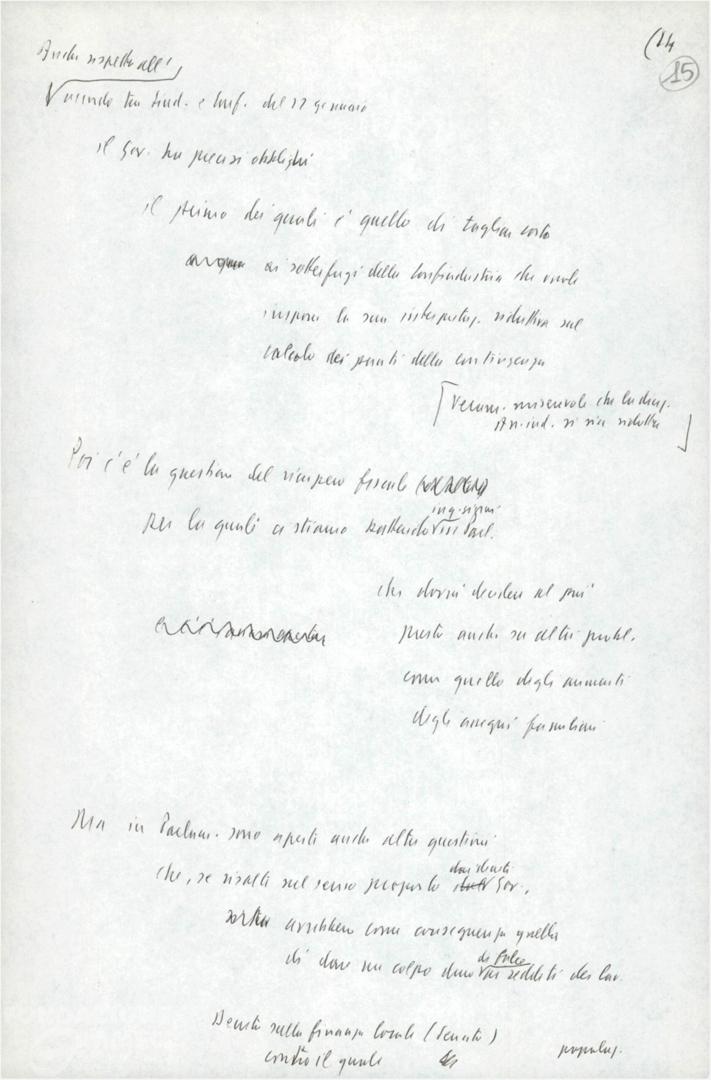 (14
15
Anche rispetto all'
accordo tra Sind. e Conf. del 22 gennaio
il Gov. ha precisi obblighi
il primo dei quali è quello di tagliar corto
ai sotterfugi della Confindustria che vuole
imporre la sua interpretaz. riduttiva sul
calcolo dei punti della contingenza
miserevole che la
ind. si sia ridotta
Poi c'è la questione del recupero fiscale
per la quale ci stiamo battendo in Parl.
che dovrà decidere al più
presto anche su altri probl.
come quello degli aumenti
degli assegni familiari
Ma in Parlam. sono aperti anche altre questioni
che, se risolti nel senso proposto dal Gov.,
avrebbero come conseguenza quella
di dare un colpo duro ai redditi dei lav.
Decreto sulla finanza locale (Senato)
contro il quale
popolaz.